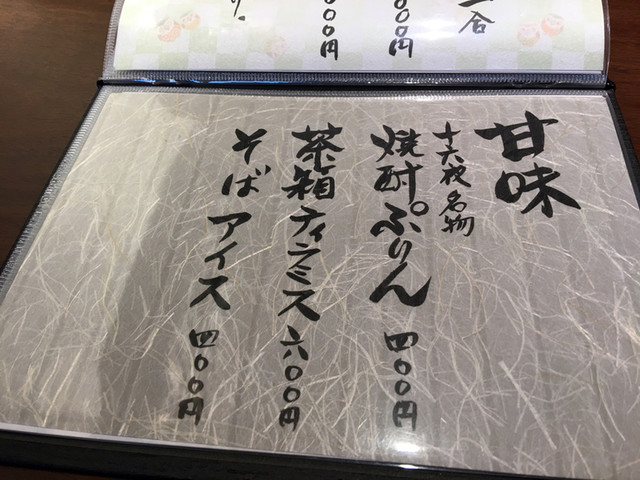 一合
〇〇円
〇〇円
り。
甘味
十六夜名物
焼酎ぷりん 四〇〇円
茶箱ティラミス 六〇〇円
そばアイス 四〇〇円